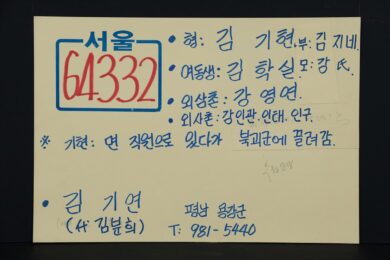 서울
64332
• 형: 김 기현, 부: 김지네.
• 여동생: 김 학실, 모: 강 氏.
• 외삼촌: 강 영연.
• 외사촌: 강인관. 인태. 인구.
※ 기현: 면 직원으로 있다가 북괴군에 끌려감.
• 김 기연
(사 김분희)
평남 용강군
T: 981-5440